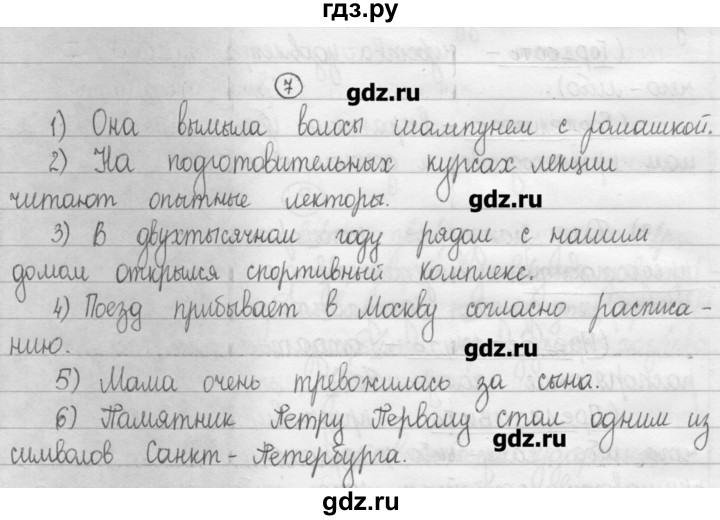 гдз.ру
7
gdz.ru
1) Она вымыла волосы шампунем с ромашкой.
2) На подготовительных курсах лекции
читают опытные лекторы.
gdz.ru
3) В двухтысячном году рядом с нашим
домом открылся спортивный комплекс.
4) Поезд прибывает в Москву согласно расписа-
нию.
gdz.ru
5) Мама очень тревожилась за сына.
6) Памятник Петру Первому стал одним из
символов Санкт-Петербурга.
gdz.ru
gdz.ru